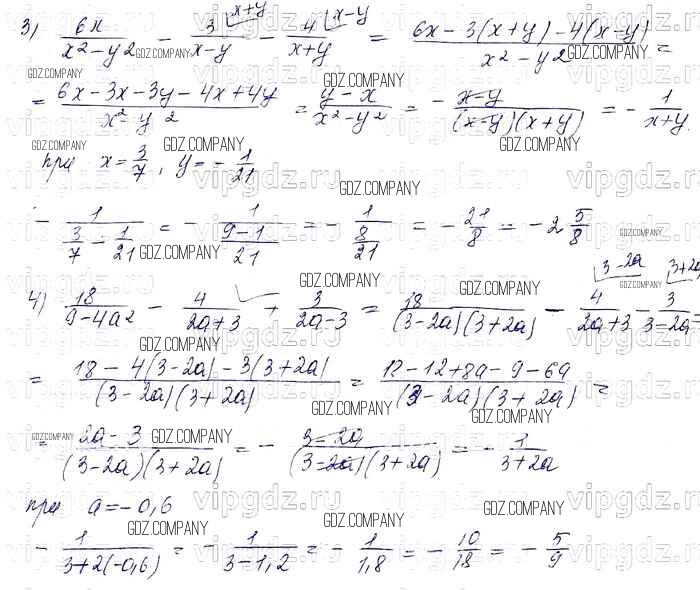 3) 6x / (x² - y²) - 3 / (x-y) - 4 / (x+y) = (6x - 3(x+y) - 4(x-y)) / (x² - y²) =
= (6x - 3x - 3y - 4x + 4y) / (x² y²) = (y - x) / (x² - y²) = - (x-y) / ((x-y)(x+y)) = - 1 / (x+y)
при x = 3/7, y = - 1/21
- 1 / (3/7 - 1/21) = - 1 / ((9-1)/21) = - 1 / (8/21) = - 21/8 = - 2 5/8
4) 18 / (9-4a²) - 4 / (2a+3) + 3 / (2a-3) = 18 / ((3-2a)(3+2a)) - 4 / (2a+3) - 3 / (3-2a) =
= (18 - 4(3-2a) - 3(3+2a)) / ((3-2a)(3+2a)) = (18-12+8a-9-6a) / ((3-2a)(3+2a)) =
= (2a-3) / ((3-2a)(3+2a)) = - (3-2a) / ((3-2a)(3+2a)) = - 1 / (3+2a)
при a = -0,6
- 1 / (3+2(-0,6)) = - 1 / (3-1,2) = - 1 / 1,8 = - 10/18 = - 5/9
x+y
x-y
3-2a
3+2a
GDZ.COMPANY
vipgdz.ru